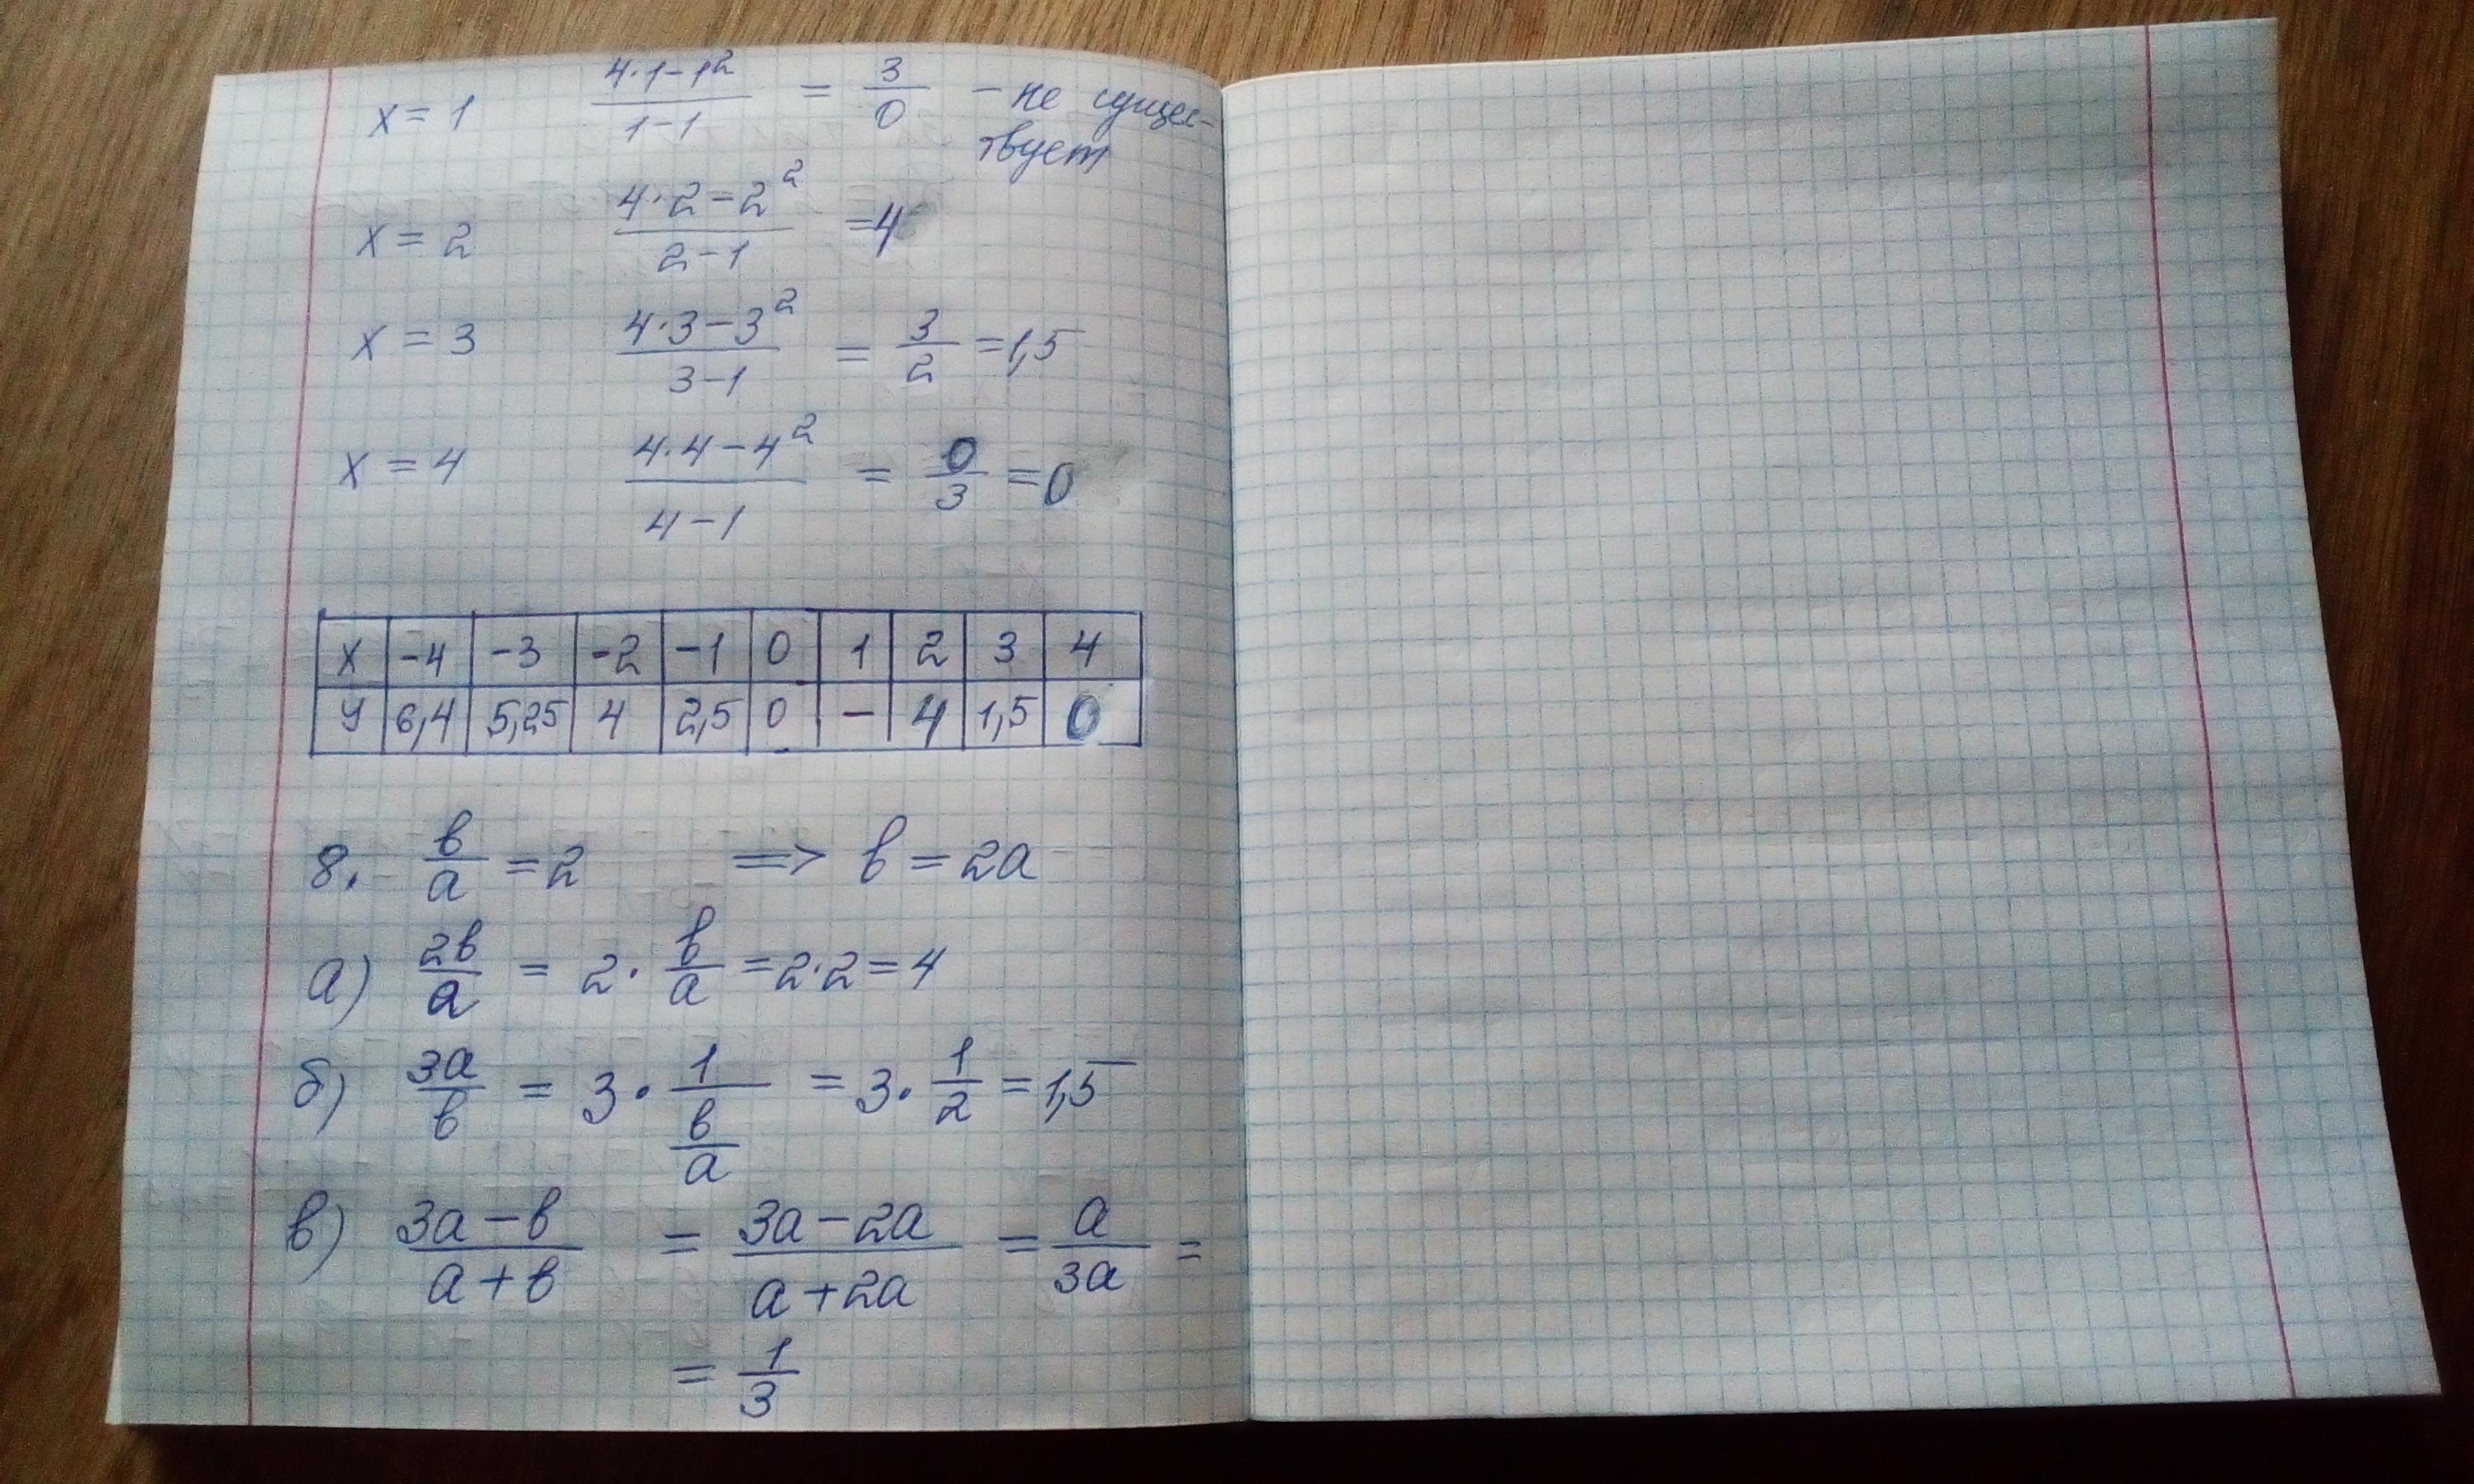 x = 1 (4·1-1²)/(1-1) = 3/0 - не сущес-
твует
x = 2 (4·2-2²)/(2-1) = 4
x = 3 (4·3-3²)/(3-1) = 3/2 = 1,5
x = 4 (4·4-4²)/(4-1) = 0/3 = 0
x -4 -3 -2 -1 0 1 2 3 4
y 6,4 5,25 4 2,5 0 - 4 1,5 0
8. в/а = 2 => в = 2а
а) 2в/а = 2·в/а = 2·2 = 4
б) 3а/в = 3·1/(в/а) = 3·1/2 = 1,5
в) (3а-в)/(а+в) = (3а-2а)/(а+2а) = а/3а =
= 1/3